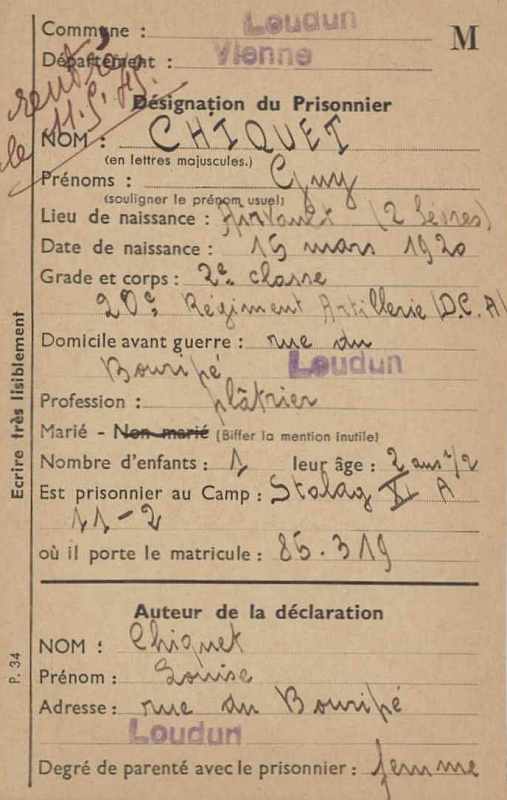 Commune : Loudun
M
Département : Vienne
rentré
le 11.5.41.
Désignation du Prisonnier
NOM : CHIQUET
(en lettres majuscules.)
Prénoms : Guy
(souligner le prénom usuel)
Lieu de naissance : Airvault (2 Sèvres)
Date de naissance : 15 mars 1920
Grade et corps : 2e classe
20e Régiment Artillerie (D.C.A)
Domicile avant guerre : rue du
Bouripé Loudun
Profession : plâtrier
Marié - Non marié (Biffer la mention inutile)
Nombre d'enfants : 1 leur âge : 2 ans 1/2
Est prisonnier au Camp : Stalag XI A
11-2
où il porte le matricule : 85.319
Auteur de la déclaration
NOM : Chiquet
Prénom : Louise
Adresse : rue du Bouripé
Loudun
Degré de parenté avec le prisonnier : femme
Ecrire très lisiblement
P. 34